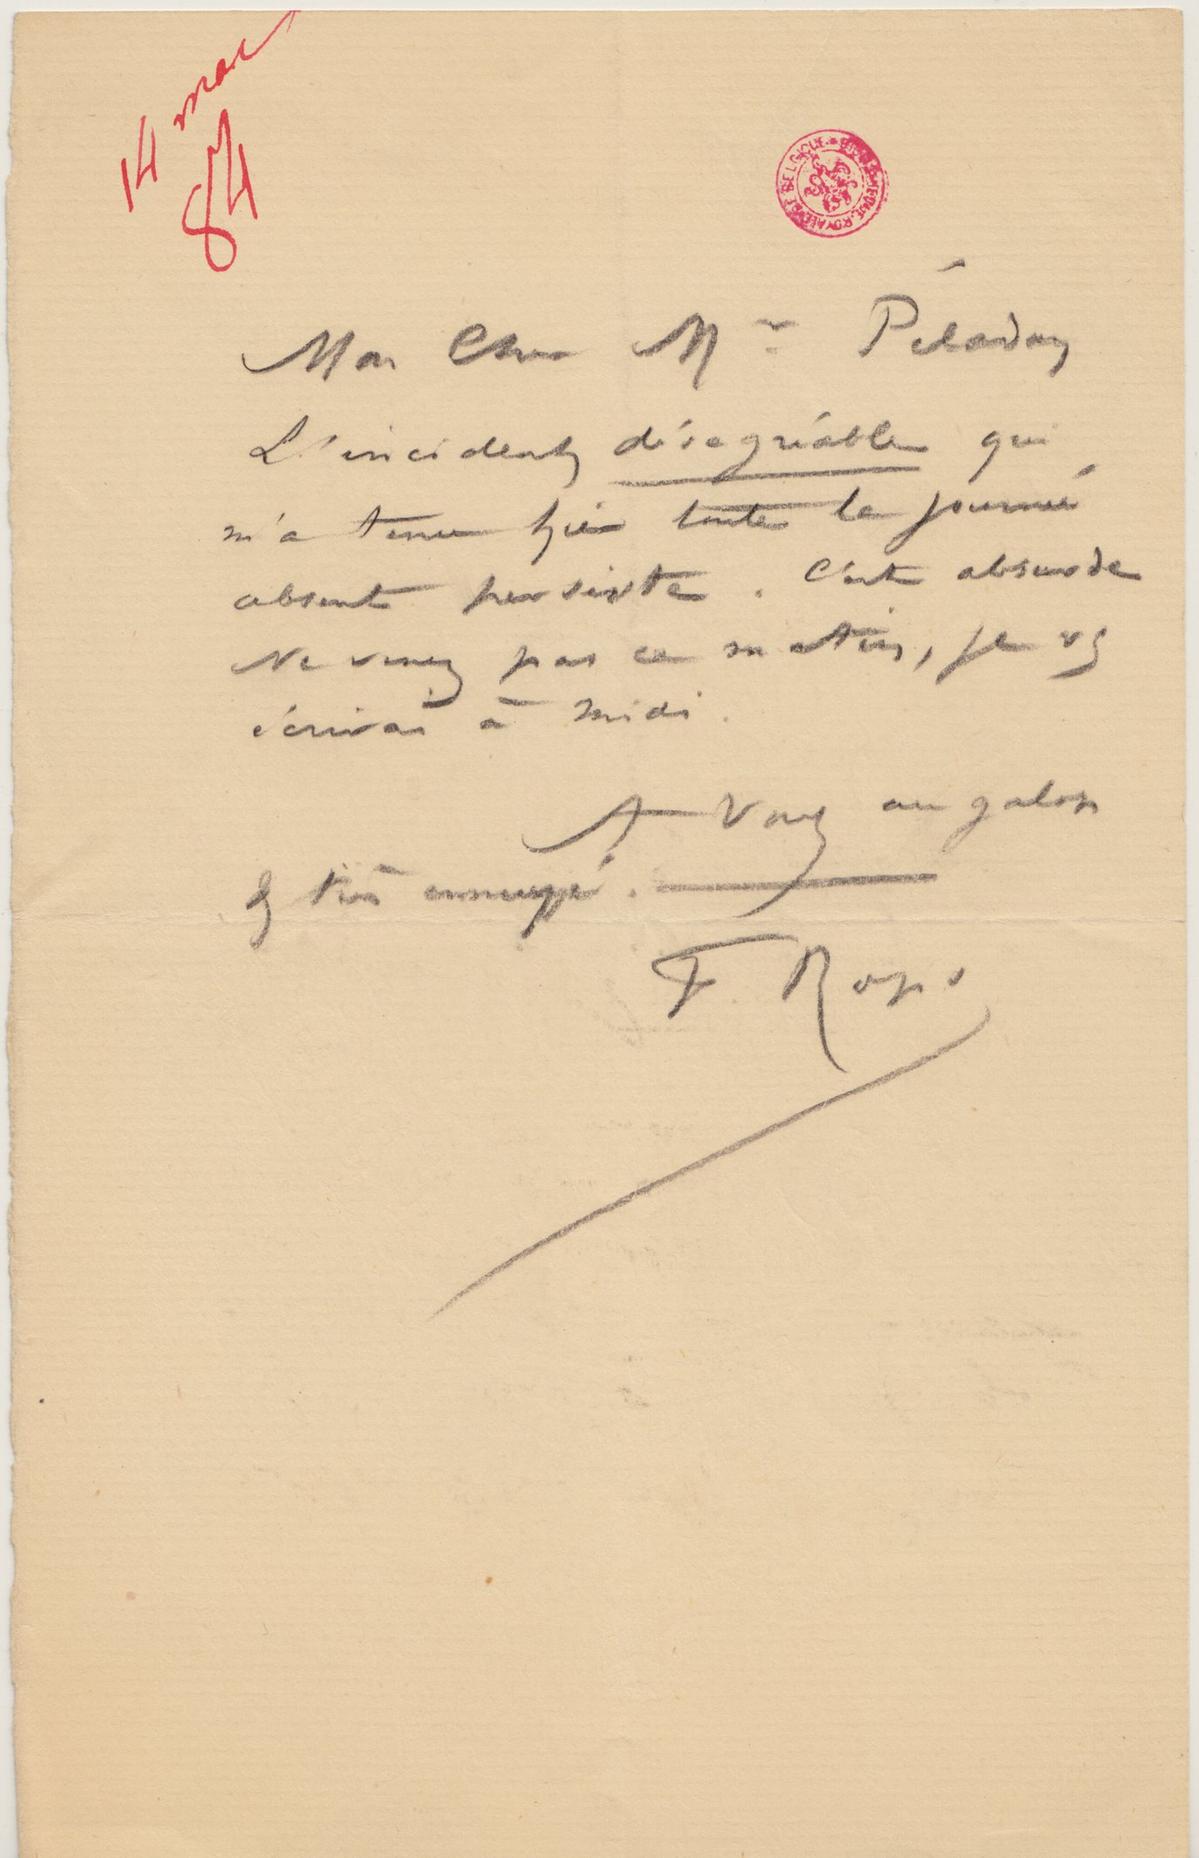 14 mars
84
BIBLIOTHEQUE ROYALE DE BELGIQUE
Mon Cher Mr Péladan
L'incident désagréable qui
m'a tenu hier toute la journée
absent persiste. C'est absurde
Ne venez pas ce matin, je vs
écrirai à midi.
A Vous au galop
& très ennuyé.
F Rops